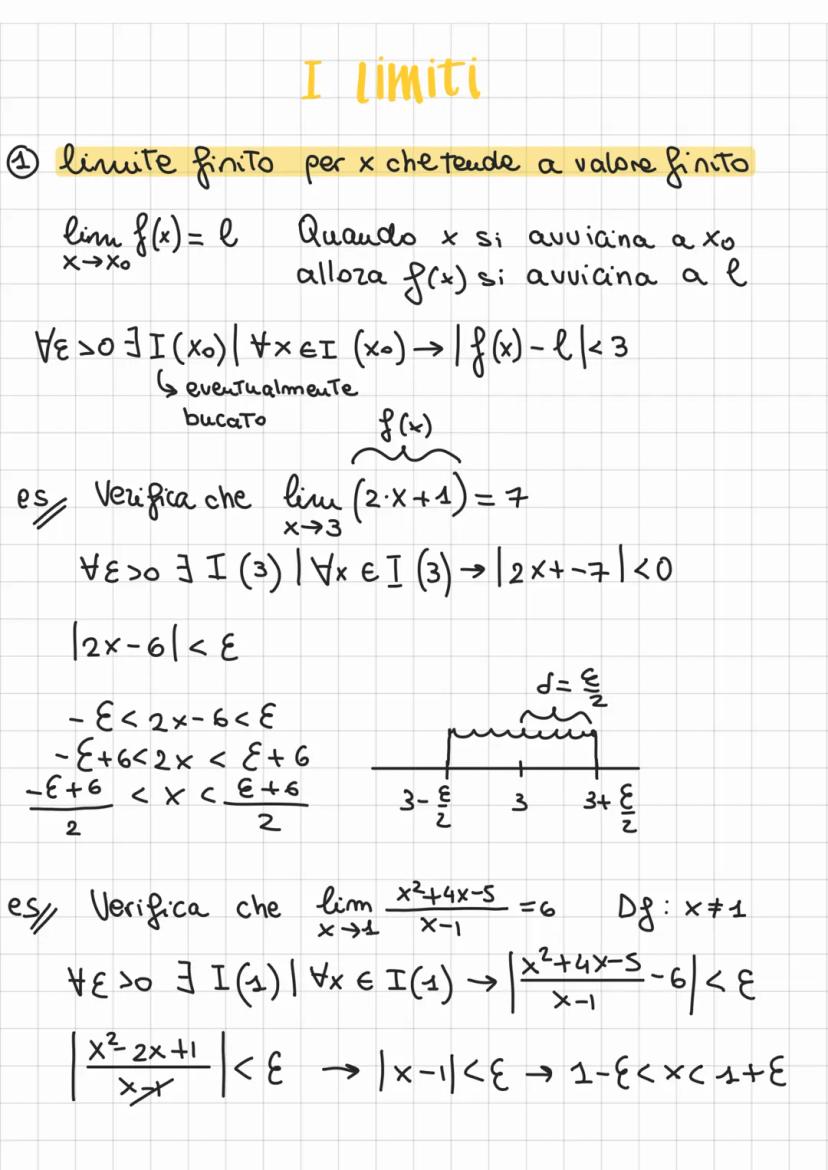 I limiti
① limite finito per x che tende a valore finito
lim f(x) = l Quando x si avvicina a x₀
x→x₀ allora f(x) si avvicina a l
∀ε>0 ∃ I(x₀) | ∀x ∈ I (x₀) → |f(x) - l| < 3
↳ eventualmente
bucato
f(x)
es// Verifica che lim (2·x+1) = 7
x→3
∀ε>0 ∃ I (3) | ∀x ∈ I (3) → |2x+-7| < 0
|2x-6| < ε
d= ε/2
-ε < 2x-6 < ε
-ε+6 < 2x < ε+6
(-ε+6)/2 < x < (ε+6)/2
3-ε/2 3 3+ε/2
es// Verifica che lim (x²+4x-5)/(x-1) = 6 Df: x≠1
x→1
∀ε>0 ∃ I(1) | ∀x ∈ I(1) → |(x²+4x-5)/(x-1) - 6| < ε
|(x²-2x+1)/(x-1)| < ε → |x-1| < ε → 1-ε < x < 1+ε